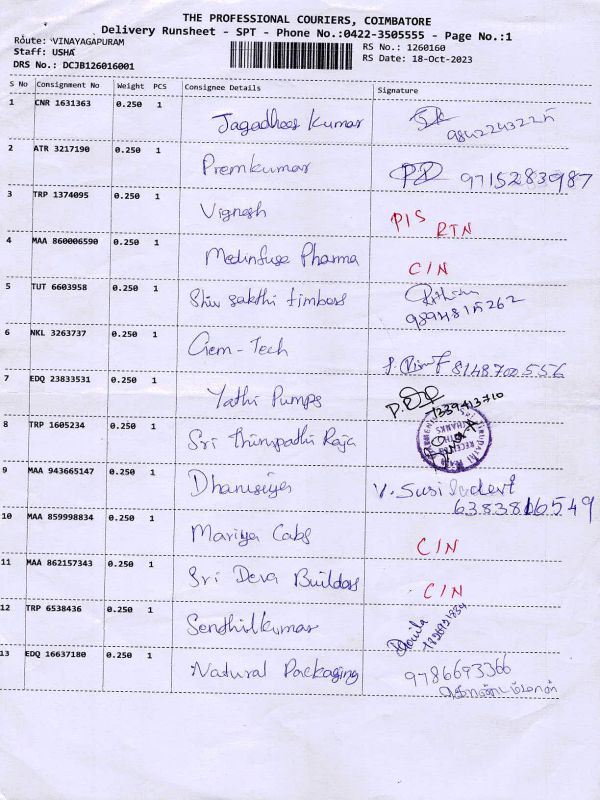 THE PROFESSIONAL COURIERS, COIMBATORE
Delivery Runsheet - SPT - Phone No.:0422-3505555 - Page No.:1
Route: VINAYAGAPURAM
Staff: USHA
DRS No.: DCJB126016001
RS No.: 1260160
RS Date: 18-Oct-2023
S No Consignment No Weight PCS Consignee Details Signature
1 CNR 1631363 0.250 1 Jagadhees Kumar 9842243225
2 ATR 3217190 0.250 1 Premkumar 9715283987
3 TRP 1374095 0.250 1 Vignesh P/S RTN
4 MAA 860006590 0.250 1 Medinfuse Pharma C/N
5 TUT 6603958 0.250 1 Shiv sakthi timbers 9894815262
6 NKL 3263737 0.250 1 Gem-Tech 8148702556
7 EDQ 23833531 0.250 1 Yathi Pumps 7339413710
8 TRP 1605234 0.250 1 Sri Thirupathi Raja RECEIVED THANKS
9 MAA 943665147 0.250 1 Dhanusiya V. Susiladevi
6383816549
10 MAA 859998834 0.250 1 Mariya Cabs C/N
11 MAA 862157343 0.250 1 Sri Deva Builders C/N
12 TRP 6538436 0.250 1 Senthilkumar
13 EDQ 16637180 0.250 1 Natural Packaging 9786693366